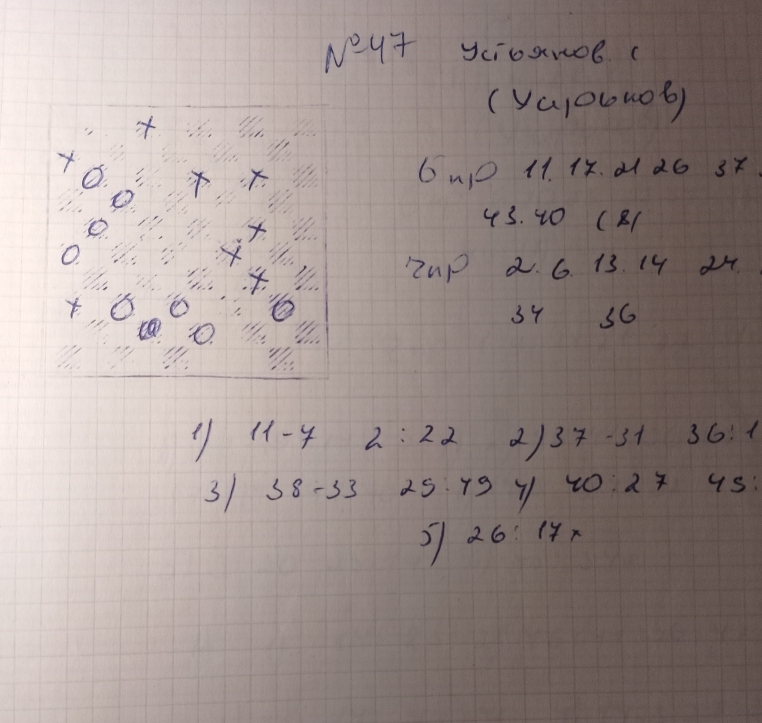 № 47 Устьянов (
(Харьков)
б пр 11. 17. 21 26 37
43. 40 (8)
ч пр 2. 6. 13. 14 24.
34 36
1) 11-7 2:22 2) 37-31 36:1
3) 38-33 29:49 4) 40:27 45:
5) 26:17x